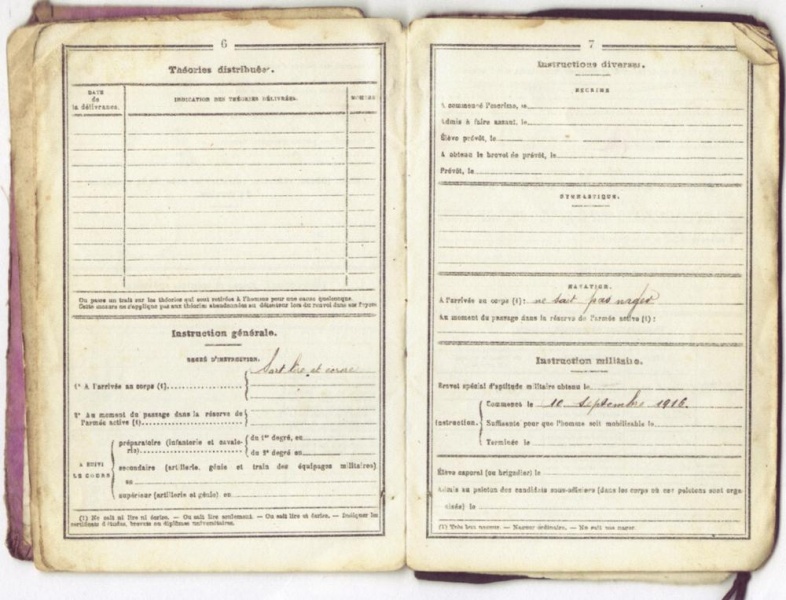 6
Théories distribuées.
DATE
de
la délivrance.
INDICATION DES THÉORIES DÉLIVRÉES.
NOMBRE
On passe un trait sur les théories qui sont retirées à l'homme pour une cause quelconque.
Cette mesure ne s'applique pas aux théories abandonnées au détenteur lors du renvoi dans ses foyers.
Instruction générale.
DEGRÉ D'INSTRUCTION.
Sait lire et écrire
1° A l'arrivée au corps (1)
2° Au moment du passage dans la réserve de
l'armée active (1)
A SUIVI
LE COURS
préparatoire (infanterie et cavale-
rie)
du 1er degré, en
du 2e degré en
secondaire (artillerie, génie et train des équipages militaires)
en
supérieur (artillerie et génie) en
(1) Ne sait ni lire ni écrire. — Ou sait lire seulement. — Ou sait lire et écrire. — Indiquer les
certificats d'études, brevets ou diplômes universitaires.
7
Instructions diverses.
ESCRIME
A commencé l'escrime, le
Admis à faire assaut, le
Élève prévôt, le
A obtenu le brevet de prévôt, le
Prévôt, le
GYMNASTIQUE.
NATATION.
A l'arrivée au corps (1) : ne sait pas nager
Au moment du passage dans la réserve de l'armée active (1) :
Instruction militaire.
Brevet spécial d'aptitude militaire obtenu le
Instruction.
Commencée le 10 septembre 1916.
Suffisante pour que l'homme soit mobilisable le
Terminée le
Élève caporal (ou brigadier) le
Admis au peloton des candidats sous-officiers (dans les corps où ces pelotons sont orga-
nisés) le
(1) Très bon nageur. — Nageur ordinaire. — Ne sait pas nager